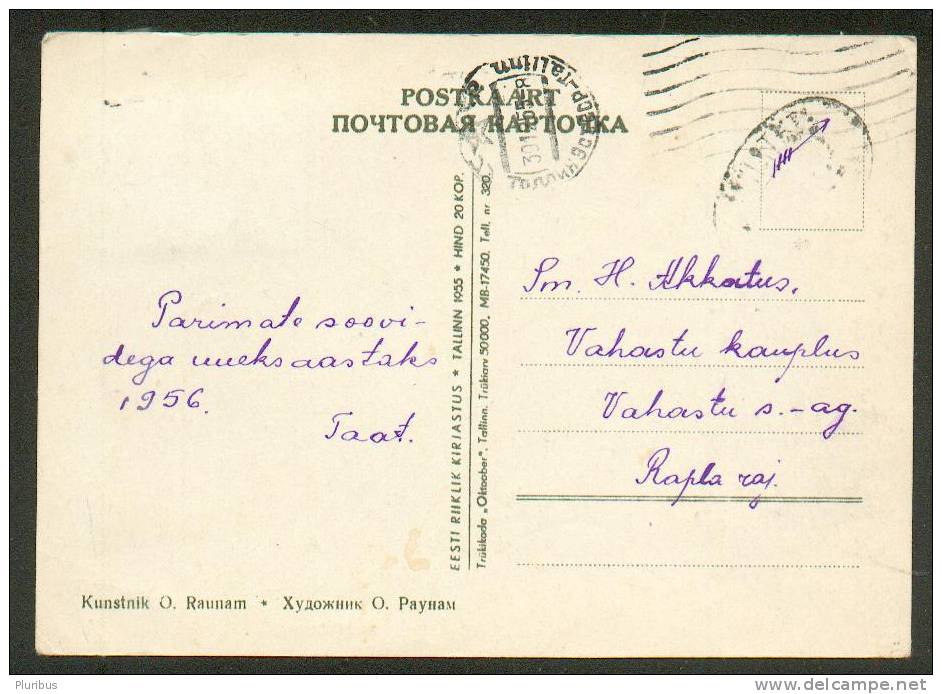 POSTKAART
ПОЧТОВАЯ КАРТОЧКА
Tallinn
Parimate soovi-
dega uueks aastaks
1956.
Taat.
EESTI RIIKLIK KIRJASTUS * TALLINN 1955 * HIND 20 KOP.
Trükikoda „Oktoober", Tallinn. Trükiarv 50 000. MB-17450. Tell. nr 320.
Sm. H. Akkatus,
Vahastu kauplus
Vahastu s.-ag.
Rapla raj.
Kunstnik O. Raunam * Художник О. Раунам
Pluribus
www.delcampe.net